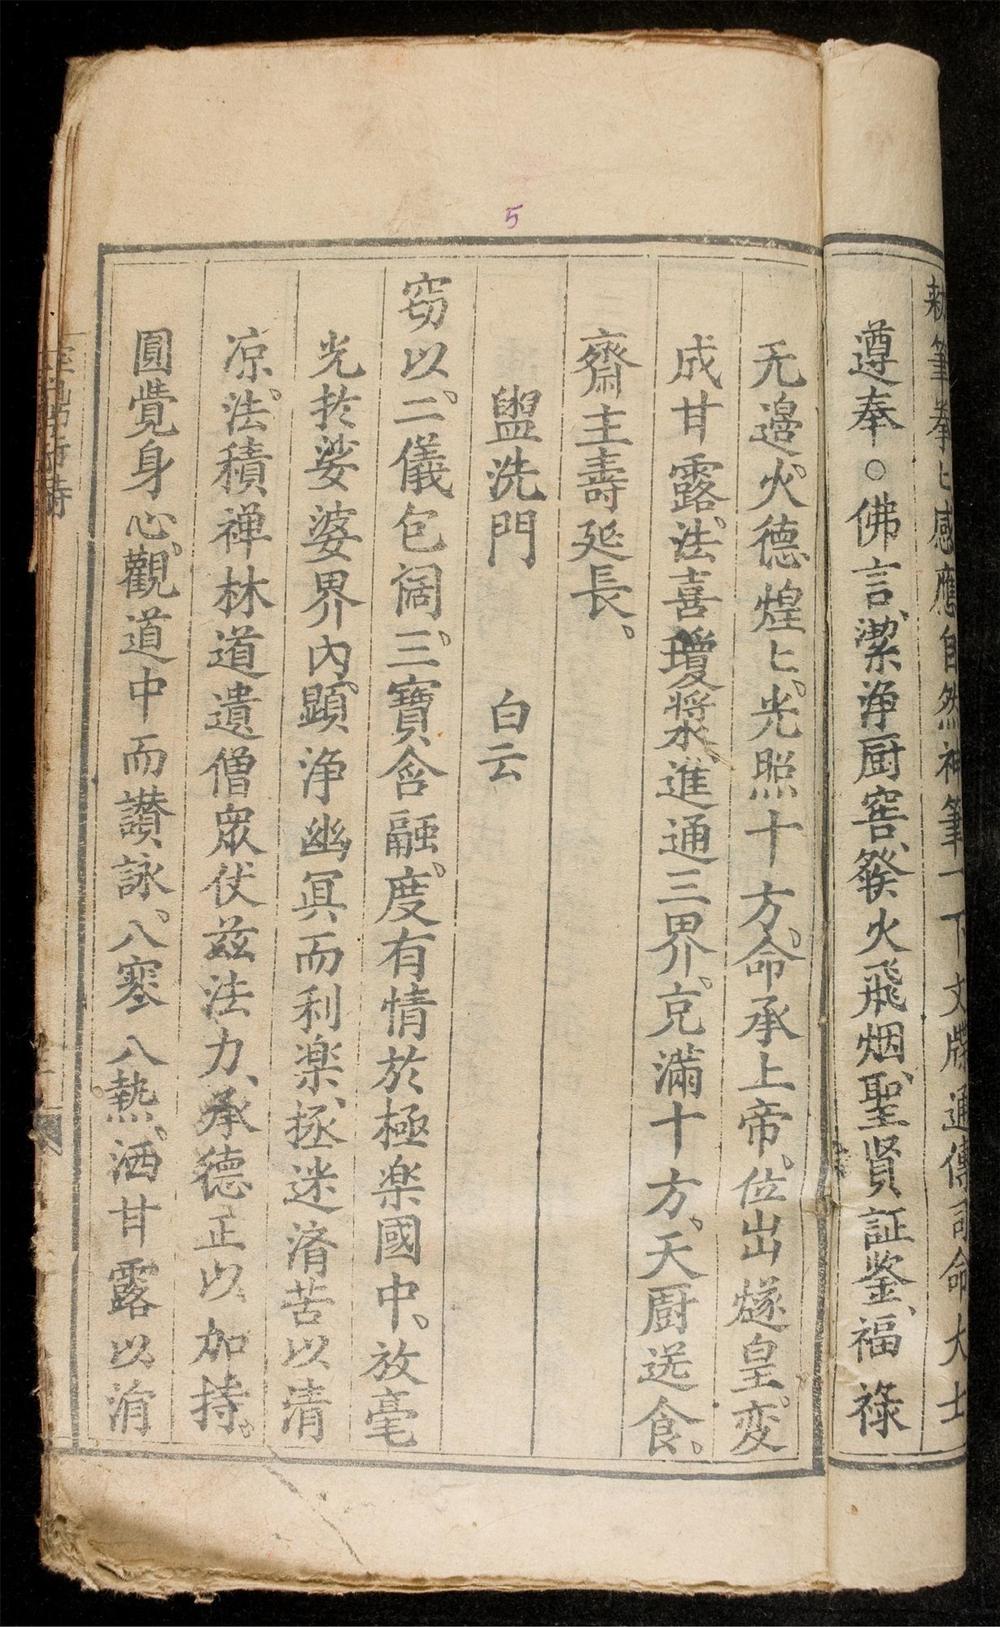 筆奉匕感應自然神筆一下文牒通傳司命大士
遵奉○佛言、潔净厨窖、發火飛烟、聖賢証鉴、福禄
无邉。火德煌匕。光照十方。命承上帝、位出燧皇。变
成甘露、法喜瓊漿、進通三界。充滿十方、天厨送食。
齋主壽延長。
盥洗門 白云
窃以。二儀包阔。三寶含融。度有情於極楽國中。放毫
光扵娑婆界内。顕净幽冥而利楽、拯迷済苦以清
凉。法積禅林道遺僧眾伏茲法力、承德正以加持。
圓覺身心。觀道中而讃詠。八寒八熱。洒甘露以消
5